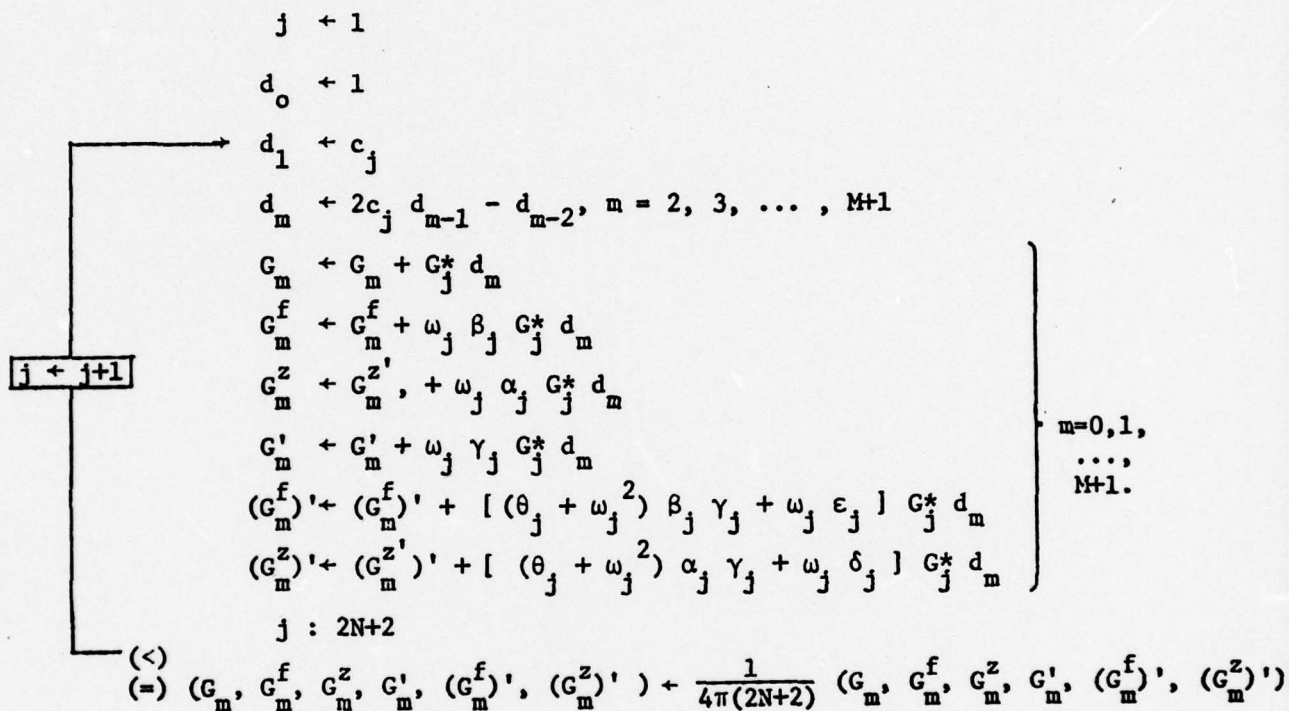 j ← 1
d_o ← 1
d_1 ← c_j
d_m ← 2c_j d_{m-1} - d_{m-2}, m = 2, 3, ... , M+1
G_m ← G_m + G_j^* d_m
G_m^f ← G_m^f + ω_j β_j G_j^* d_m
j ← j+1
G_m^z ← G_m^{z'}, + ω_j α_j G_j^* d_m
G'_m ← G'_m + ω_j γ_j G_j^* d_m
m=0,1,
...,
M+1.
(G_m^f)' ← (G_m^f)' + [ (θ_j + ω_j^2) β_j γ_j + ω_j ε_j ] G_j^* d_m
(G_m^z)' ← (G_m^{z'})' + [ (θ_j + ω_j^2) α_j γ_j + ω_j δ_j ] G_j^* d_m
j : 2N+2
(<)
(=) (G_m, G_m^f, G_m^z, G'_m, (G_m^f)', (G_m^z)' ) ← \frac{1}{4π(2N+2)} (G_m, G_m^f, G_m^z, G'_m, (G_m^f)', (G_m^z)')